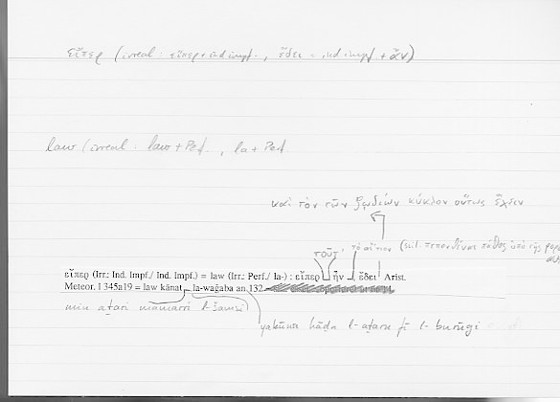 εἴπερ (irreal · εἴπερ + ind impf · , ἔδει - ind impf + ἄν)
law (irreal · law + Perf. , la + Perf
καὶ τὸν τῶν ζῳδίων κύκλον οὕτως ἔχειν
τοῦτ' · τὸ αἴτιον (scil. πεπονθέναι πάθος ὑπὸ τῆς
εἴπερ (Irr.: Ind. Impf./ Ind. Impf.) = law (Irr.: Perf./ la-) : εἴπερ ἦν ἔδει Arist.
Meteor. I 345a19 = law kānat la-waǧaba an 132
min aṯari mamarri l-šamsi
yakūna hāḏa l-aṯaru fī l-burūǧi